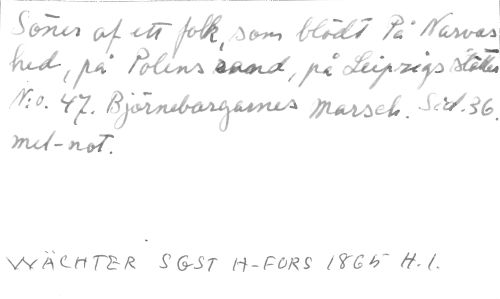 Söner af ett folk, som blödt På Narvas
hed, på Polens sand, på Leipzigs slätter
N:o. 47. Björneborgarnes marsch. Sid. 36.
mel-not.
WÄCHTER SGST H-FORS 1865 H.1.